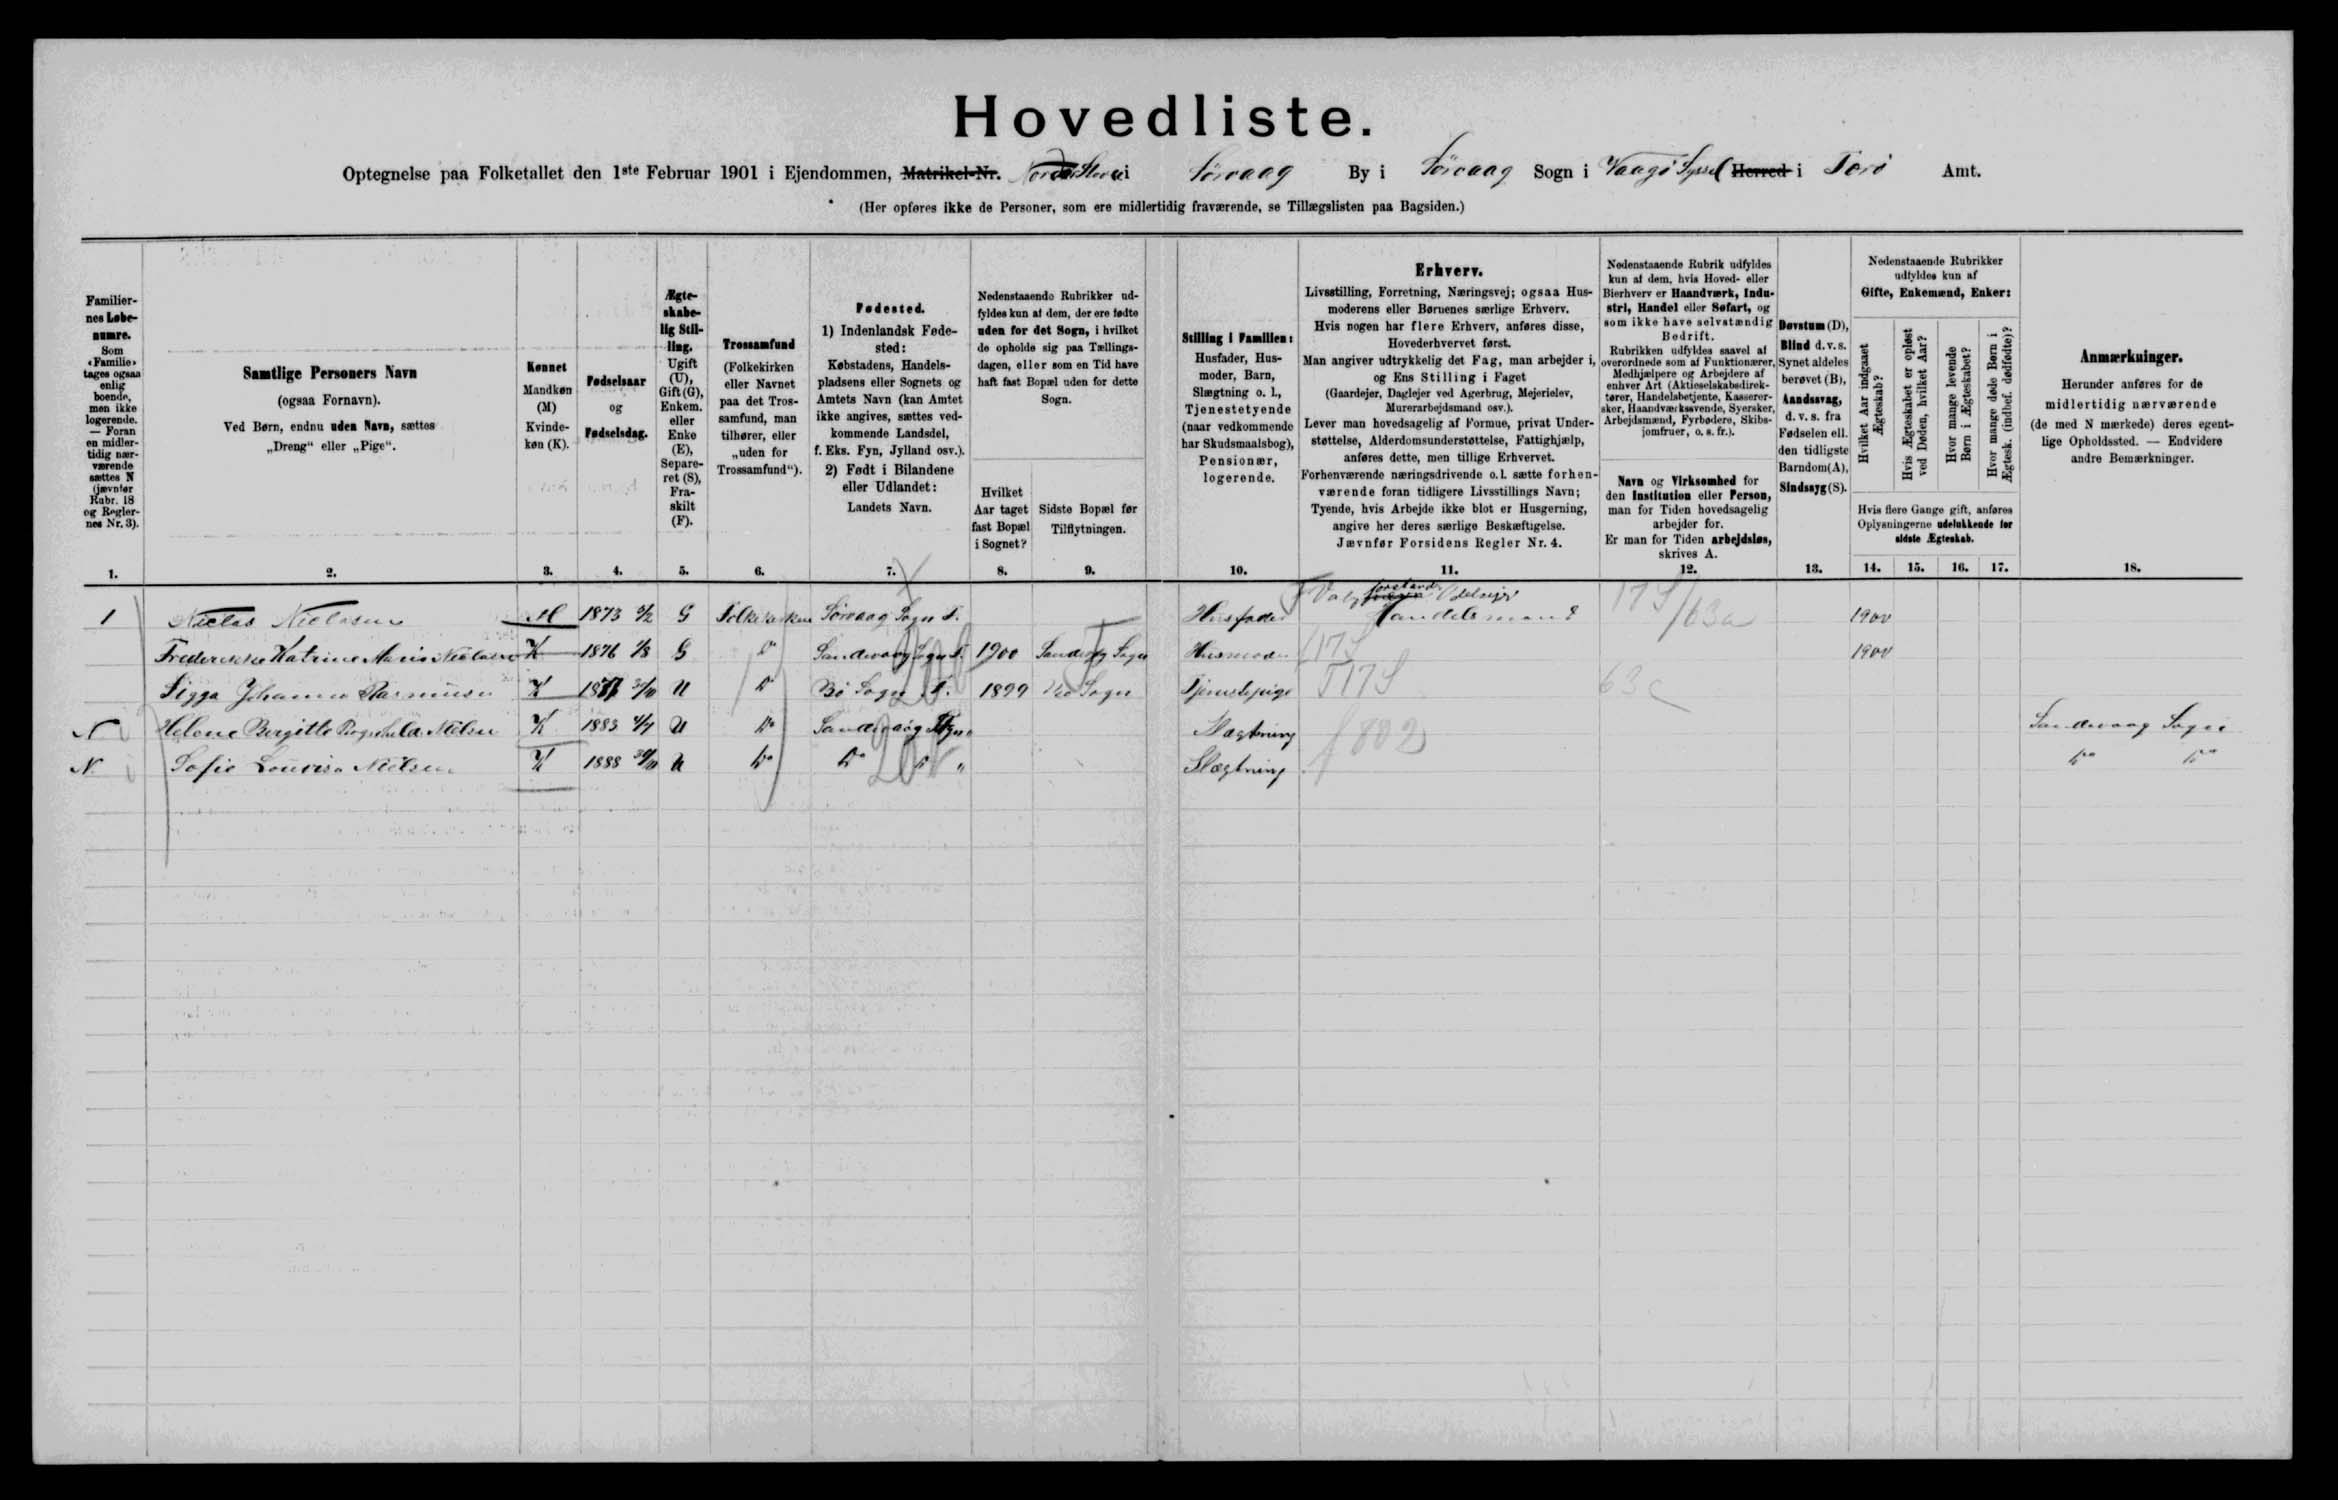 Hovedliste.
Optegnelse paa Folketallet den 1ste Februar 1901 i Ejendommen, Matrikel-Nr. i Sörvaag By i Sörvaag Sogn i Vaagö Syssel Herred i Færö Amt.
(Her opføres ikke de Personer, som ere midlertidig fraværende, se Tillægslisten paa Bagsiden.)
Familier-
nes Løbe-
numre.
Som
«Familie»
tages ogsaa
enlig
boende,
men ikke
logerende.
— Foran
en midler-
tidig nær-
værende
sættes N
(jævnfør
Rubr. 18
og Regler-
nes Nr. 3).
1.
Samtlige Personers Navn
(ogsaa Fornavn).
Ved Børn, endnu uden Navn, sættes
„Dreng“ eller „Pige“.
2.
Kønnet
Mandkøn
(M)
Kvinde-
køn (K).
3.
Fødselsaar
og
Fødselsdag.
4.
Ægte-
skabe-
lig Stil-
ling.
Ugift
(U),
Gift (G),
Enkem.
eller
Enke
(E),
Separe-
ret (S),
Fra-
skilt
(F).
5.
Trossamfund
(Folkekirken
eller Navnet
paa det Tros-
samfund, man
tilhører, eller
„uden for
Trossamfund“).
6.
Fødested.
1) IndenlandskFøde-
sted:
Købstadens, Handels-
pladsens eller Sognets og
Amtets Navn (kan Amtet
ikke angives, sættes ved-
kommende Landsdel,
f. Eks. Fyn, Jylland osv.).
2) Født i Bilandene
eller Udlandet:
Landets Navn.
7.
Nedenstaaende Rubrikker ud-
fyldes kun af dem, der ere fødte
uden for det Sogn, i hvilket
de opholde sig paa Tællings-
dagen, eller som en Tid have
haft fast Bopæl uden for dette
Sogn.
Hvilket
Aar taget
fast Bopæl
i Sognet?
8.
Sidste Bopæl før
Tilflytningen.
9.
Stilling i Familien:
Husfader, Hus-
moder, Barn,
Slægtning o. l.,
Tjenestetyende
(naar vedkommende
har Skudsmaalsbog),
Pensionær,
logerende.
10.
Erhverv.
Livsstilling, Forretning, Næringsvej; ogsaa Hus-
moderens eller Børnenes særlige Erhverv.
Hvis nogen har flere Erhverv, anføres disse,
Hovederhvervet først.
Man angiver udtrykkelig det Fag, man arbejder i,
og Ens Stilling i Faget
(Gaardejer, Daglejer ved Agerbrug, Mejerielev,
Murerarbejdsmand osv.).
Lever man hovedsagelig af Formue, privat Under-
støttelse, Alderdomsunderstøttelse, Fattighjælp,
anføres dette, men tillige Erhvervet.
Forhenværende næringsdrivende o.l. sætte forhen-
værende foran tidligere Livsstillings Navn;
Tyende, hvis Arbejde ikke blot er Husgerning,
angive her deres særlige Beskæftigelse.
Jævnfør Forsidens Regler Nr. 4.
11.
Nedenstaaende Rubrik udfyldes
kun af dem, hvis Hoved- eller
Bierhverv er Haandværk, Indu-
stri, Handel eller Søfart, og
som ikke have selvstændig
Bedrift.
Rubrikken udfyldes saavel af
overordnede som af Funktionærer,
Medhjælpere og Arbejdere af
enhver Art (Aktieselskabsdirek-
tører, Handelsbetjente, Kasserer-
sker, Haandværkssvende, Syersker,
Arbejdsmænd, Fyrbødere, Skibs-
jomfruer, o. s. fr.).
Navn og Virksomhed for
den Institution eller Person,
man for Tiden hovedsagelig
arbejder for.
Er man for Tiden arbejdsløs,
skrives A.
12.
Døvstum (D),
Blind d. v. s.
Synet aldeles
berøvet (B),
Aandssvag,
d. v. s. fra
Fødselen ell.
den tidligste
Barndom (A),
Sindssyg (S).
13.
Nedenstaaende Rubrikker
udfyldes kun af
Gifte, Enkemænd, Enker:
Hvilket Aar indgaaet
Ægteskab?
Hvis Ægteskabet er opløst
ved Døden, hvilket Aar?
Hvor mange levende
Børn i Ægteskabet?
Hvor mange døde Børn i
Ægtesk. (indbef. dødfødte)?
Hvis flere Gange gift, anføres
Oplysningerne udelukkende for
sidste Ægteskab.
14. 15. 16. 17.
Anmærkninger.
Herunder anføres for de
midlertidig nærværende
(de med N mærkede) deres egent-
lige Opholdssted. — Endvidere
andre Bemærkninger.
18.
1 Niclas Niclasen M 1873 G Folkekirken Sörvaag Sogn F. Husfader Handelsmand 17S/63a 1900
Frederikke Katrine Maria Niclasen K 1876 G Do Sandevaag Sogn F. 1900 Sandevaag Sogn Husmoder 17S 1900
Sigga Johanne Rasmusen K U Do Bö Sogn F. 1899 Bö Sogn Tjenestepige 17S 63c
N Helene Birgitte Nielsen K 1883 U Do Sandevaag Sogn Slægtning 802 Sandevaag Sogn
N. Sofie Lovisa Nielsen K 1888 U Do Do Do „ Slægtning Do Do